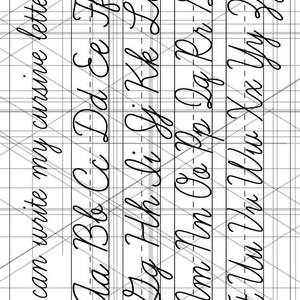 can write my cursive lette
Aa Bb Cc Dd Ee F
Gg Hh Ii Jj Kk L
Mm Nn Oo Pp Qq Rr
Uu Vv Ww Xx Yy